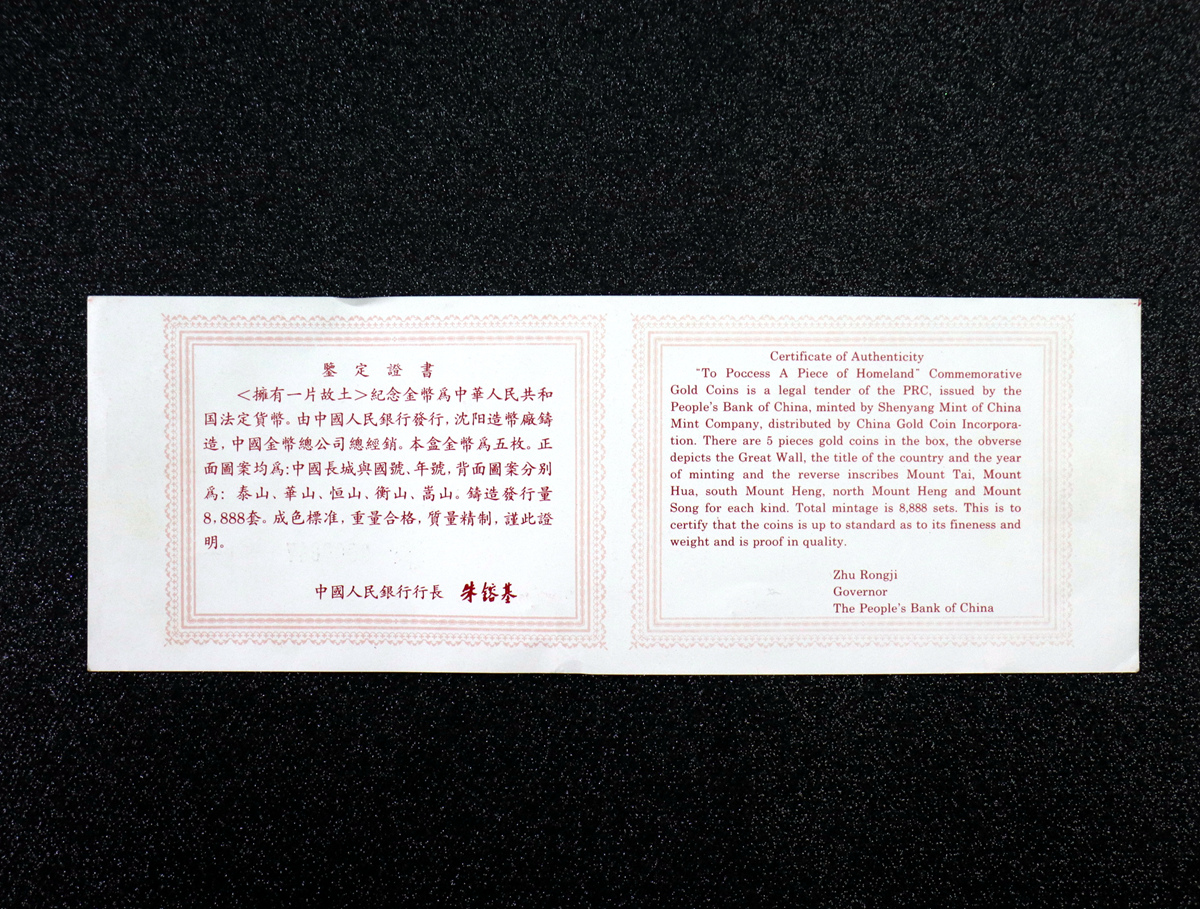 鑒定證書
＜擁有一片故土＞紀念金幣爲中華人民共和
国法定貨幣。由中國人民銀行發行，沈阳造幣廠鑄
造，中國金幣總公司總經銷。本盒金幣爲五枚。正
面圖案均爲：中國長城與國號、年號，背面圖案分别
爲：泰山、華山、恒山、衡山、嵩山。鑄造發行量
8,888套。成色標准，重量合格，質量精制，謹此證
明。
中國人民銀行行長 朱镕基
Certificate of Authenticity
"To Poccess A Piece of Homeland" Commemorative
Gold Coins is a legal tender of the PRC, issued by the
People's Bank of China, minted by Shenyang Mint of China
Mint Company, distributed by China Gold Coin Incorpora-
tion. There are 5 pieces gold coins in the box, the obverse
depicts the Great Wall, the title of the country and the year
of minting and the reverse inscribes Mount Tai, Mount
Hua, south Mount Heng, north Mount Heng and Mount
Song for each kind. Total mintage is 8,888 sets. This is to
certify that the coins is up to standard as to its fineness and
weight and is proof in quality.
Zhu Rongji
Governor
The People's Bank of China